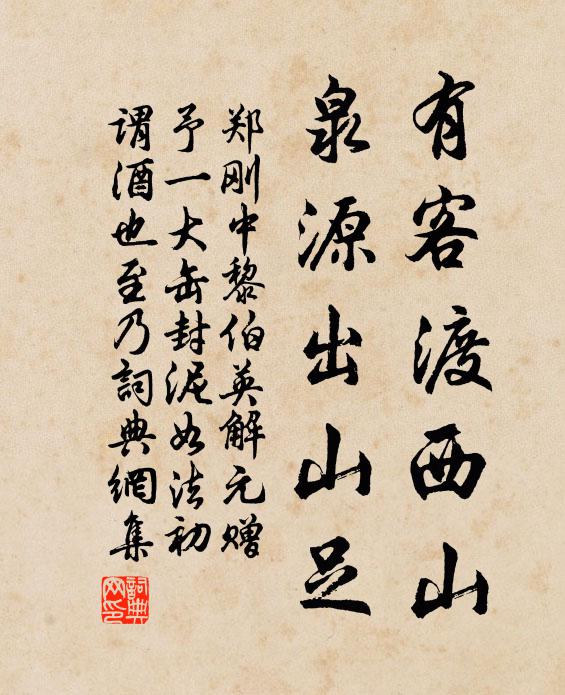 有客渡西山
泉源出山足
郑刚中黎伯英解元赠
予一大缶封泥如法初
谓酒也至乃詞典網集